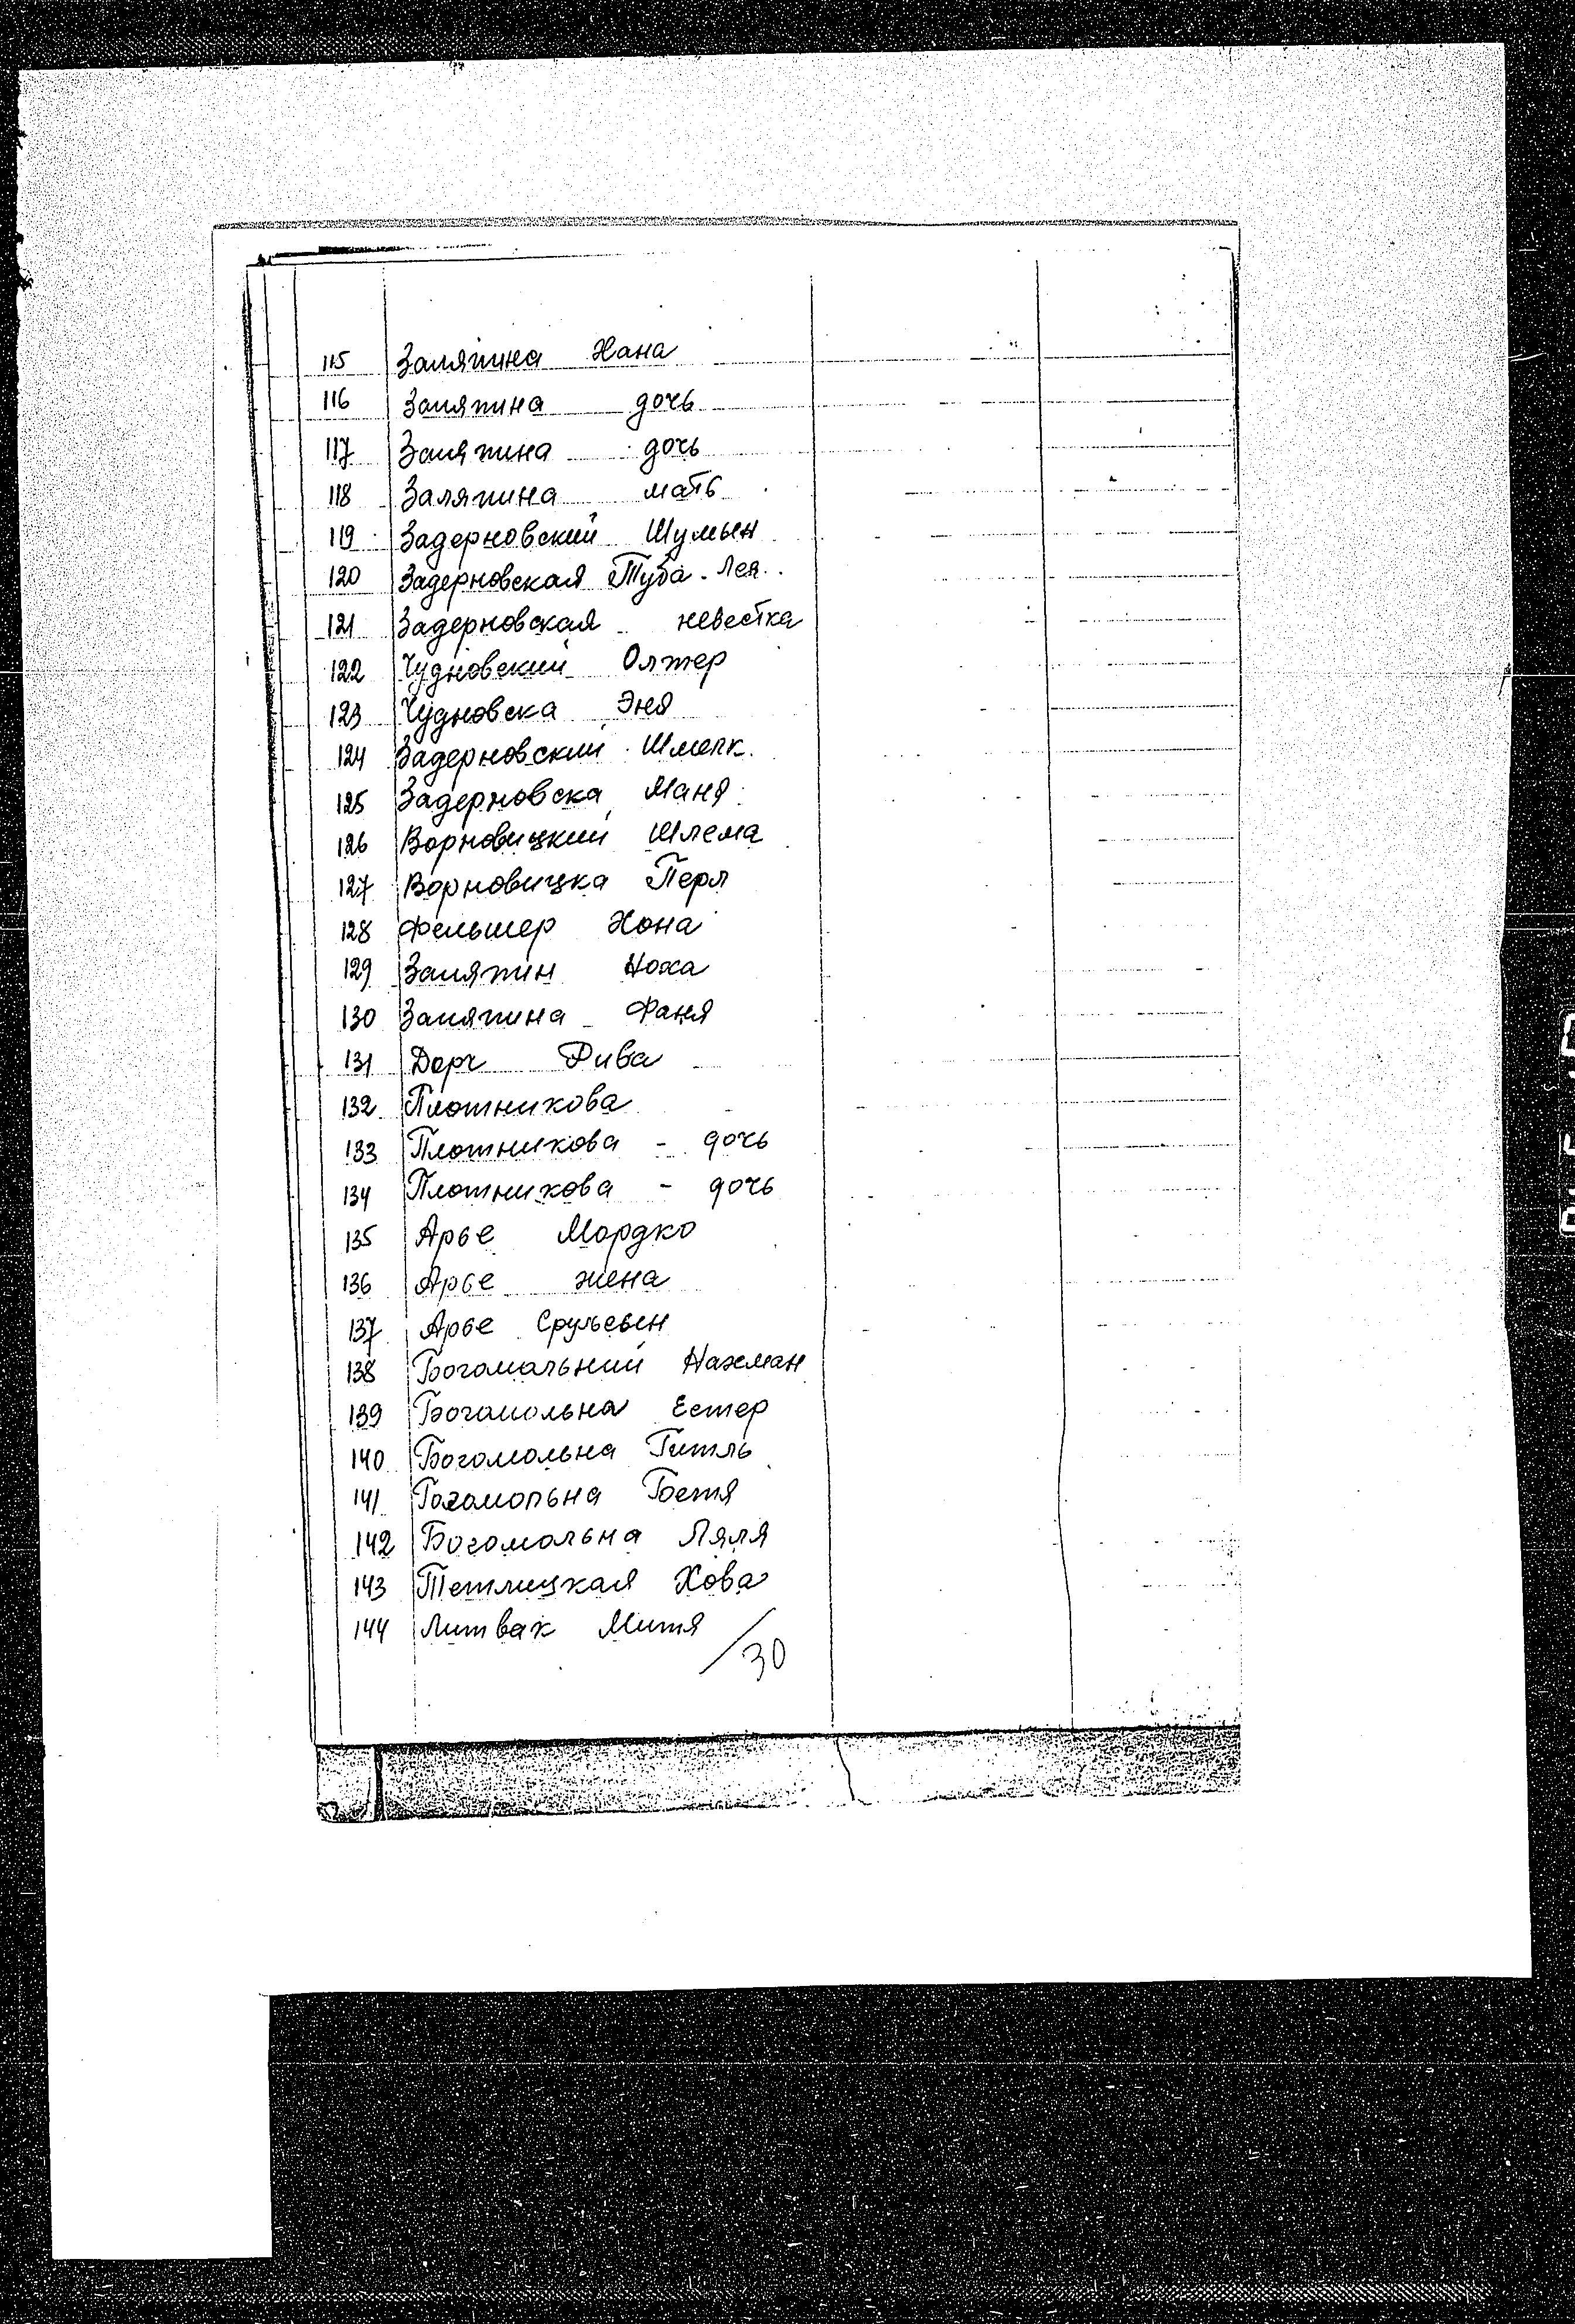 115 Заляпина Хана
116 Заляпина дочь
117 Заляпина дочь
118 Заляпина мать
119 Задерновский Шумын
120 Задерновская Туба-Лея
121 Задерновская невестка
122 Чудновский Олтер
123 Чудновска Эня
124 Задерновский Шмелк
125 Задерновска Маня
126 Ворновицкий Шлема
127 Ворновицка Перл
128 Фельшер Хона
129 Заляпин Ноха
130 Заляпина Фаня
131 Дорч Рива
132 Плотникова
133 Плотникова - дочь
134 Плотникова - дочь
135 Арье Мордко
136 Арье жена
137 Арье Срульевын
138 Богомальний Нахман
139 Богомольна Естер
140 Богомольна Гитль
141 Богомольна Бетя
142 Богомольна Ляля
143 Тетлицкая Хова
144 Литвак Митя
/30